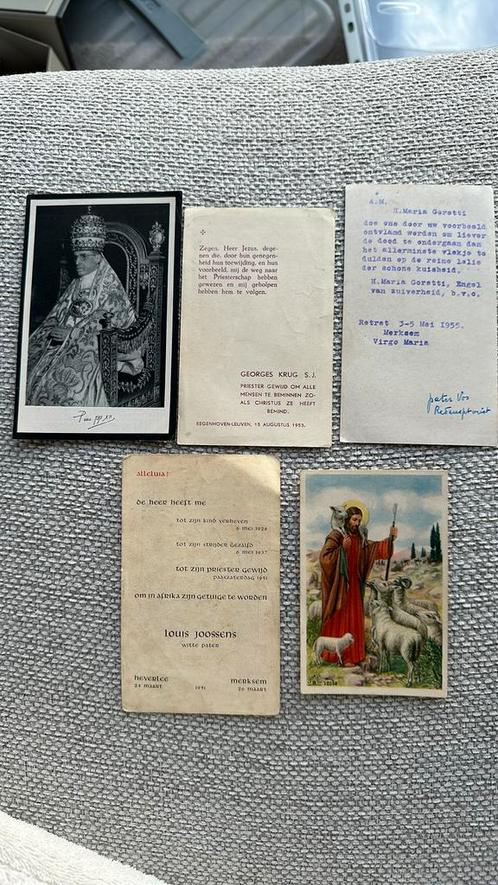 Pius pp. XII
Zegen, Heer Jezus, dege-
nen die, door hun genegen-
heid hun toewijding, en hun
voorbeeld, mij de weg naar
het Priesterschap hebben
gewezen en mij geholpen
hebben hem te volgen.
GEORGES KRUG S. J.
PRIESTER GEWIJD OM ALLE
MENSEN TE BEMINNEN ZO-
ALS CHRISTUS ZE HEEFT
BEMIND.
EEGENHOVEN-LEUVEN, 15 AUGUSTUS 1953.
A.M.
H.Maria Goretti
doe ons door uw voorbeeld
ontvlamd worden om liever
de dood te ondergaan dan
het allerminste vlekje te
dulden op de reine lelie
der schone kuisheid.
H.Maria Goretti, Engel
van zuiverheid, b.v.o.
Retret 3-5 Mei 1955.
Merksem
Virgo Maria
pater Vos
Redemptorist
alleluia!
de heer heeft me
tot zijn kind verheven
6 mei 1926
tot zijn strijder gezalfd
6 mei 1937
tot zijn priester gewijd
paaszaterdag 1951
om in afrika zijn getuige te worden
louis joossens
witte pater
heverlee
24 maart
1951
merksem
26 maart